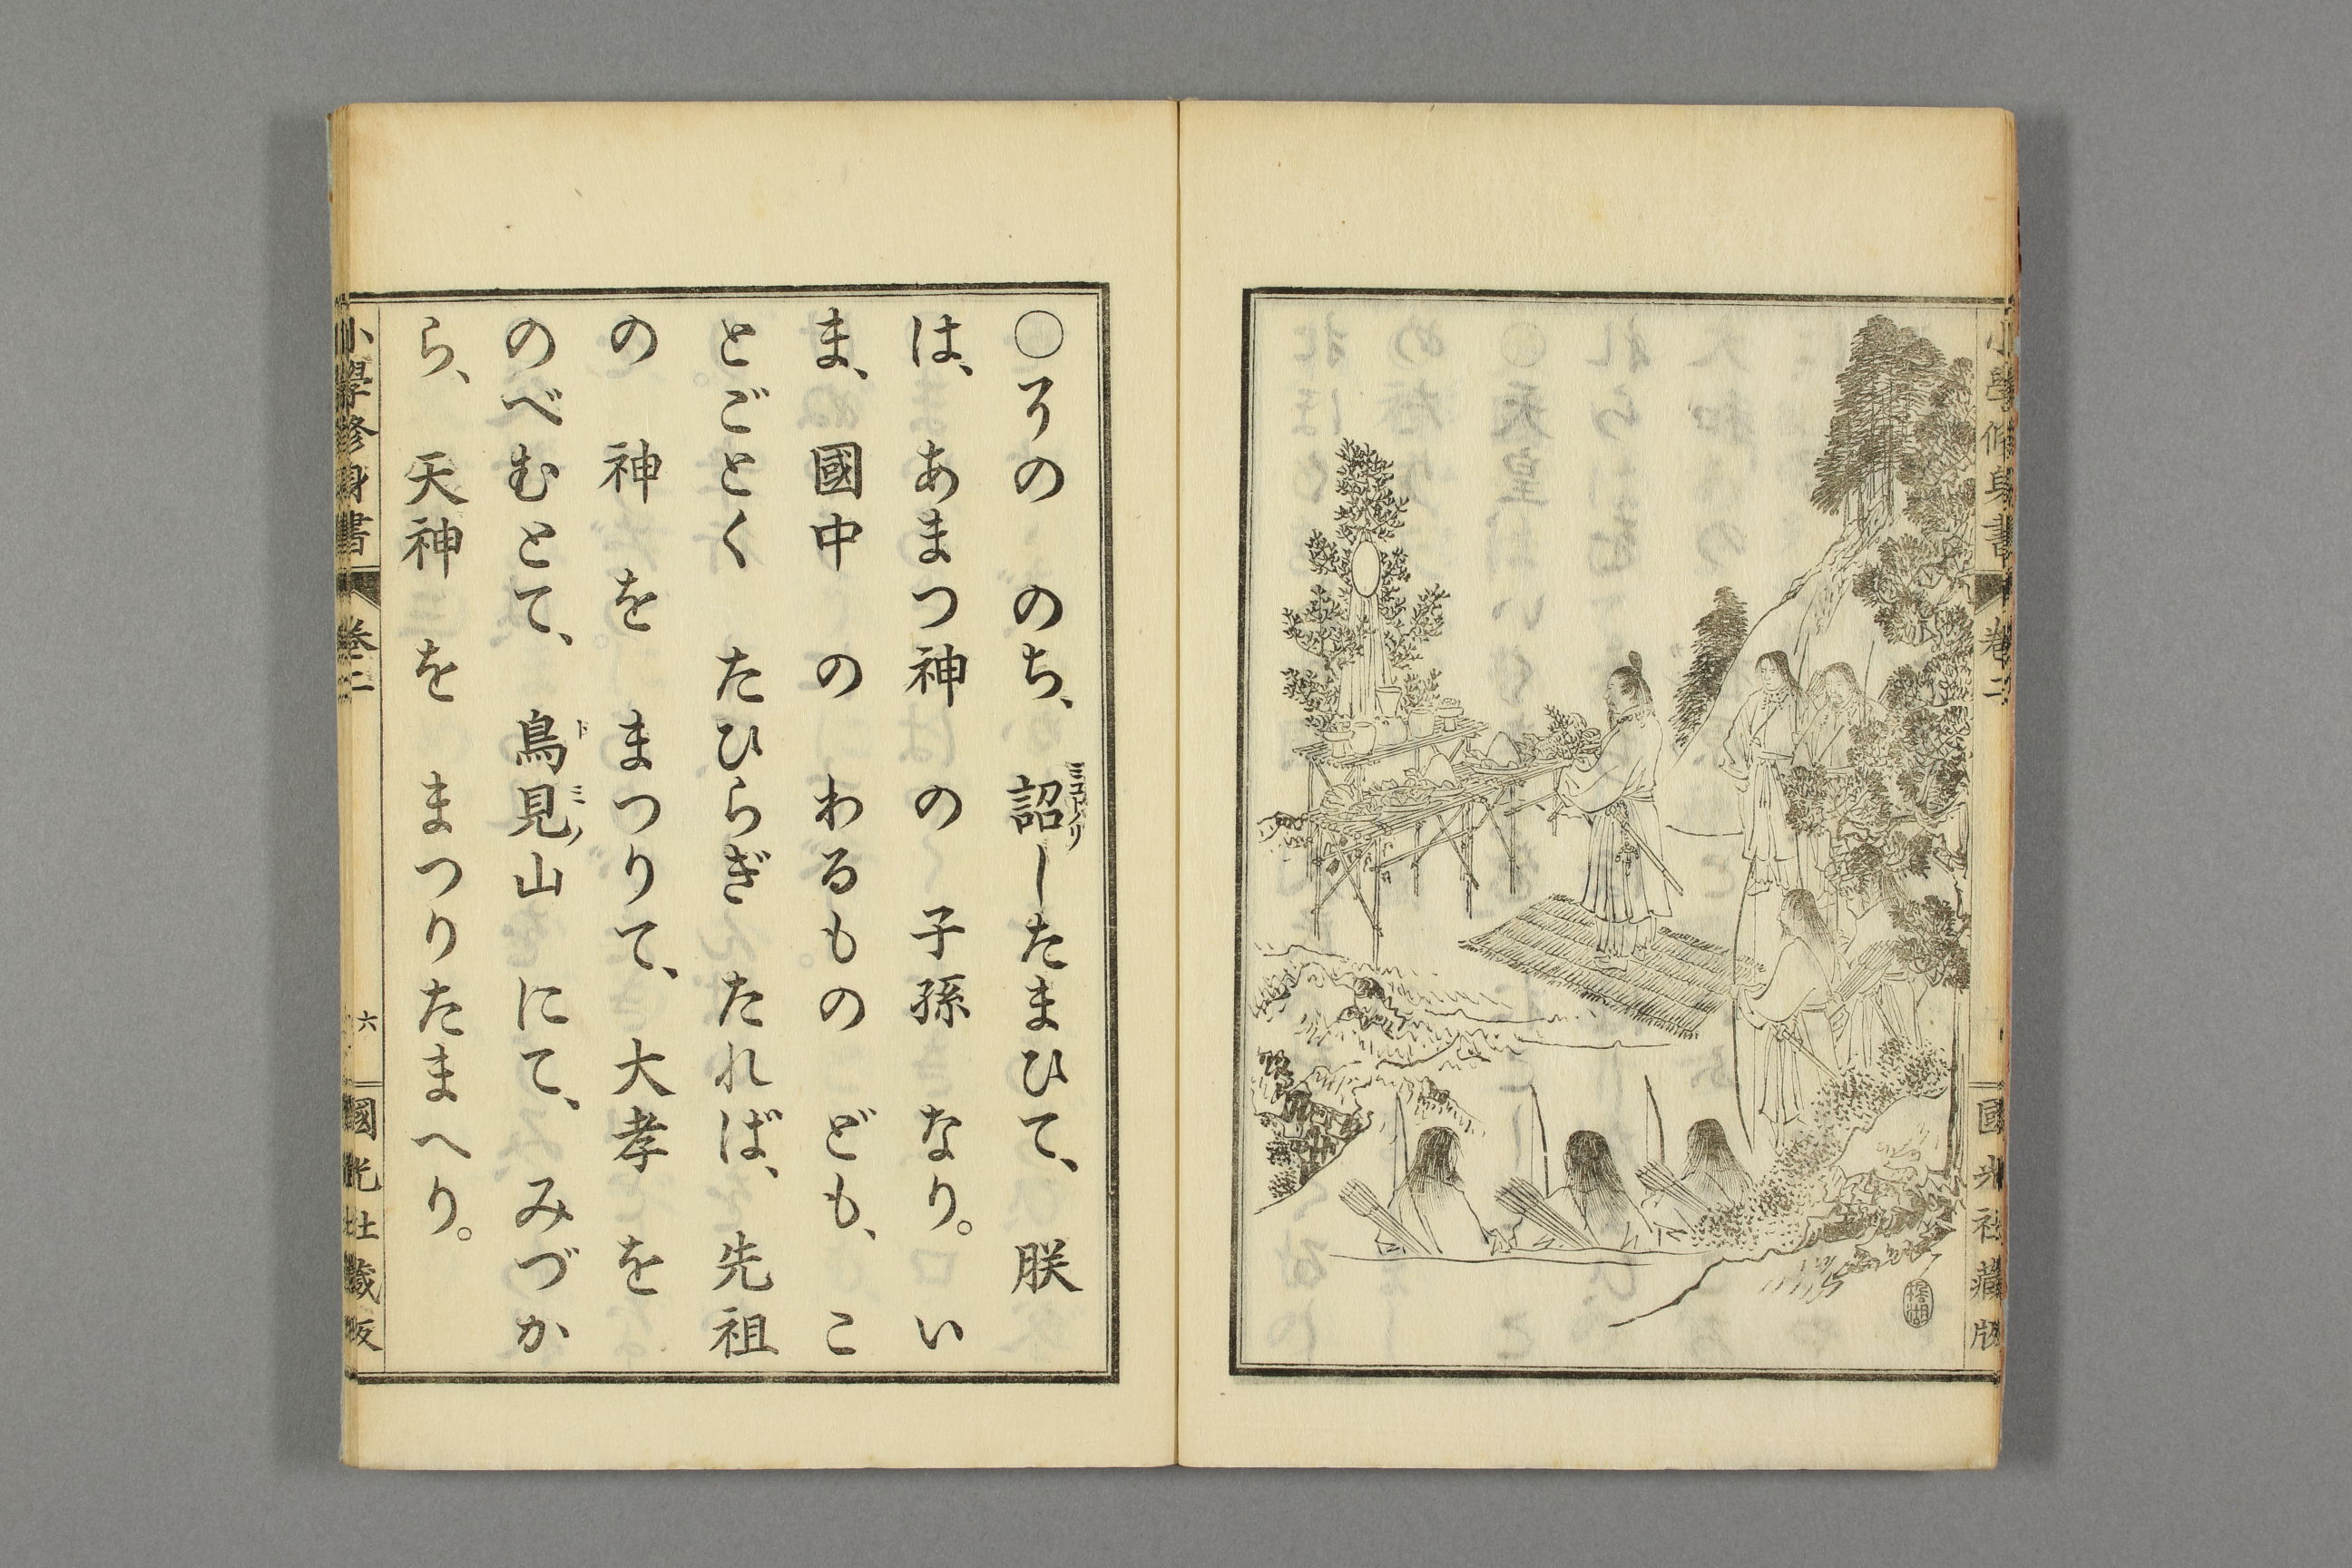 小學修身書 卷二 國光社藏版
〇その のち、 詔したまひて、 朕
ミコトノリ
は、 あまつ神 の 子孫 なり。 い
ま、 國中 の わるもの ども、 こ
とごとく たひらぎ たれば、 先祖
の 神 を まつりて、 大孝 を
のべむとて、 鳥見山 にて、 みづか
ト ミノ
ら、 天神 を まつりたまへり。
小學修身書 卷二 六 國光社藏版